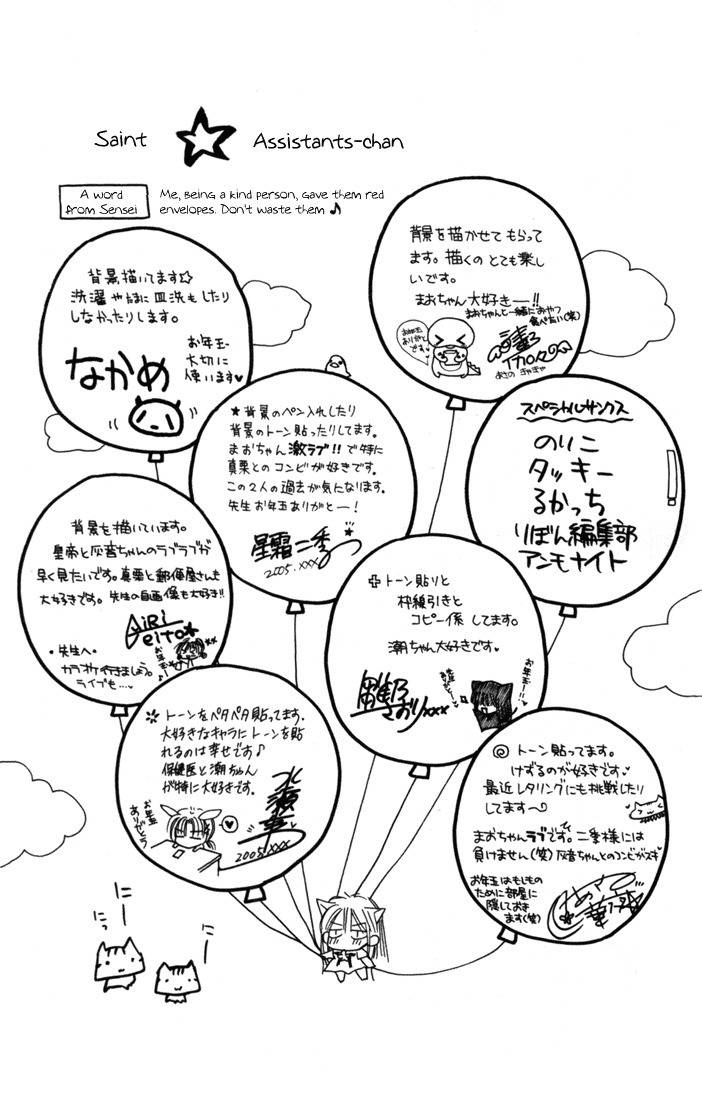 Saint ☆ Assistants-chan
A word
from Sensei
Me, being a kind person, gave them red
envelopes. Don't waste them ♪
背景を描かせてもらって
ます。描くのとても楽し
いです。
まおちゃん大好きー!!
まおちゃんと一緒におやつ
食べたい(笑)
お年玉
ありがと
です。
あさの
背景描いてます☆
洗濯やたまに皿洗もしたり
しなかったりします。
お年玉
大切に
使います♥
なかめ
★背景のペン入れしたり
背景のトーン貼ったりしてます。
まおちゃん激ラブ!!で特に
真栗とのコンビが好きです。
この2人の過去が気になります。
先生お年玉ありがとー!
星霜二季
2005.xxx
スペシャルサンクス
のりこ
タッキー
るかっち
りぼん編集部
アンモナイト
背景を描いています。
皇帝と灰音ちゃんのラブラブが
早く見たいです。真栗と郵便屋さんも
大好きです。先生の自画像も大好き!!
AiRi
eito★
・先生へ・
カラオケ行きましょう。
ライブも…♥
お年玉
トーン貼りと
枠線引きと
コピー係してます。
潮ちゃん大好きです♥
さおりxxx
お年玉…!
トーンをペタペタ貼ってます。
大好きなキャラにトーンを貼
れるのは幸せです♪
保健医と潮ちゃん
が特に大好きです。
お年玉
ありがとう
水波華
2005.xxx
◎トーン貼ってます。
けずるのが好きです♥
最近レタリングにも挑戦したり
してます〜
まおちゃんラブです。二季様には
負けません(笑)灰音ちゃんとのコンビがスキ
お年玉はもしもの
ために部屋に
隠しておき
ます(笑)
にー
にっ
にー